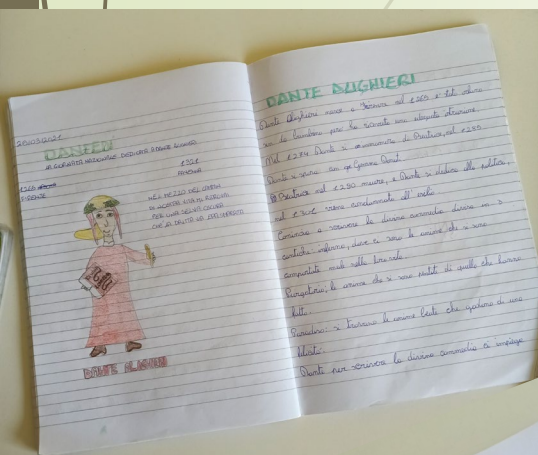 25/03/2021
DANTEDÌ
LA GIORNATA NAZIONALE DEDICATA A DANTE ALIGHIERI
1265
1321
FIRENZE
RAVENNA
NEL MEZZO DEL CAMMIN
DI NOSTRA VITA MI RITROVAI
PER UNA SELVA OSCURA
CHÉ LA DIRITTA VIA ERA SMARRITA
DANTE ALIGHIERI
DANTE ALIGHIERI
Dante Alighieri nasce a Firenze nel 1265 è stato allevato
sin da bambino poi ha ricevuto una istruzione.
Nel 1274 Dante si innamora di Beatrice, nel 1285
Dante si sposa con Gemma Donati.
Beatrice nel 1290 muore, e Dante si dedica alla politica,
nel 1302 viene condannato all'esilio.
Comincia a scrivere la divina commedia divisa in 3
cantiche: inferno, dove ci sono le anime che si sono
comportate male nella loro vita.
Purgatorio; le anime che si sono pentite di quello che hanno
fatto.
Paradiso: si trovano le anime beate che godono di una
felicità.
Dante per scrivere la divina commedia ci impiega